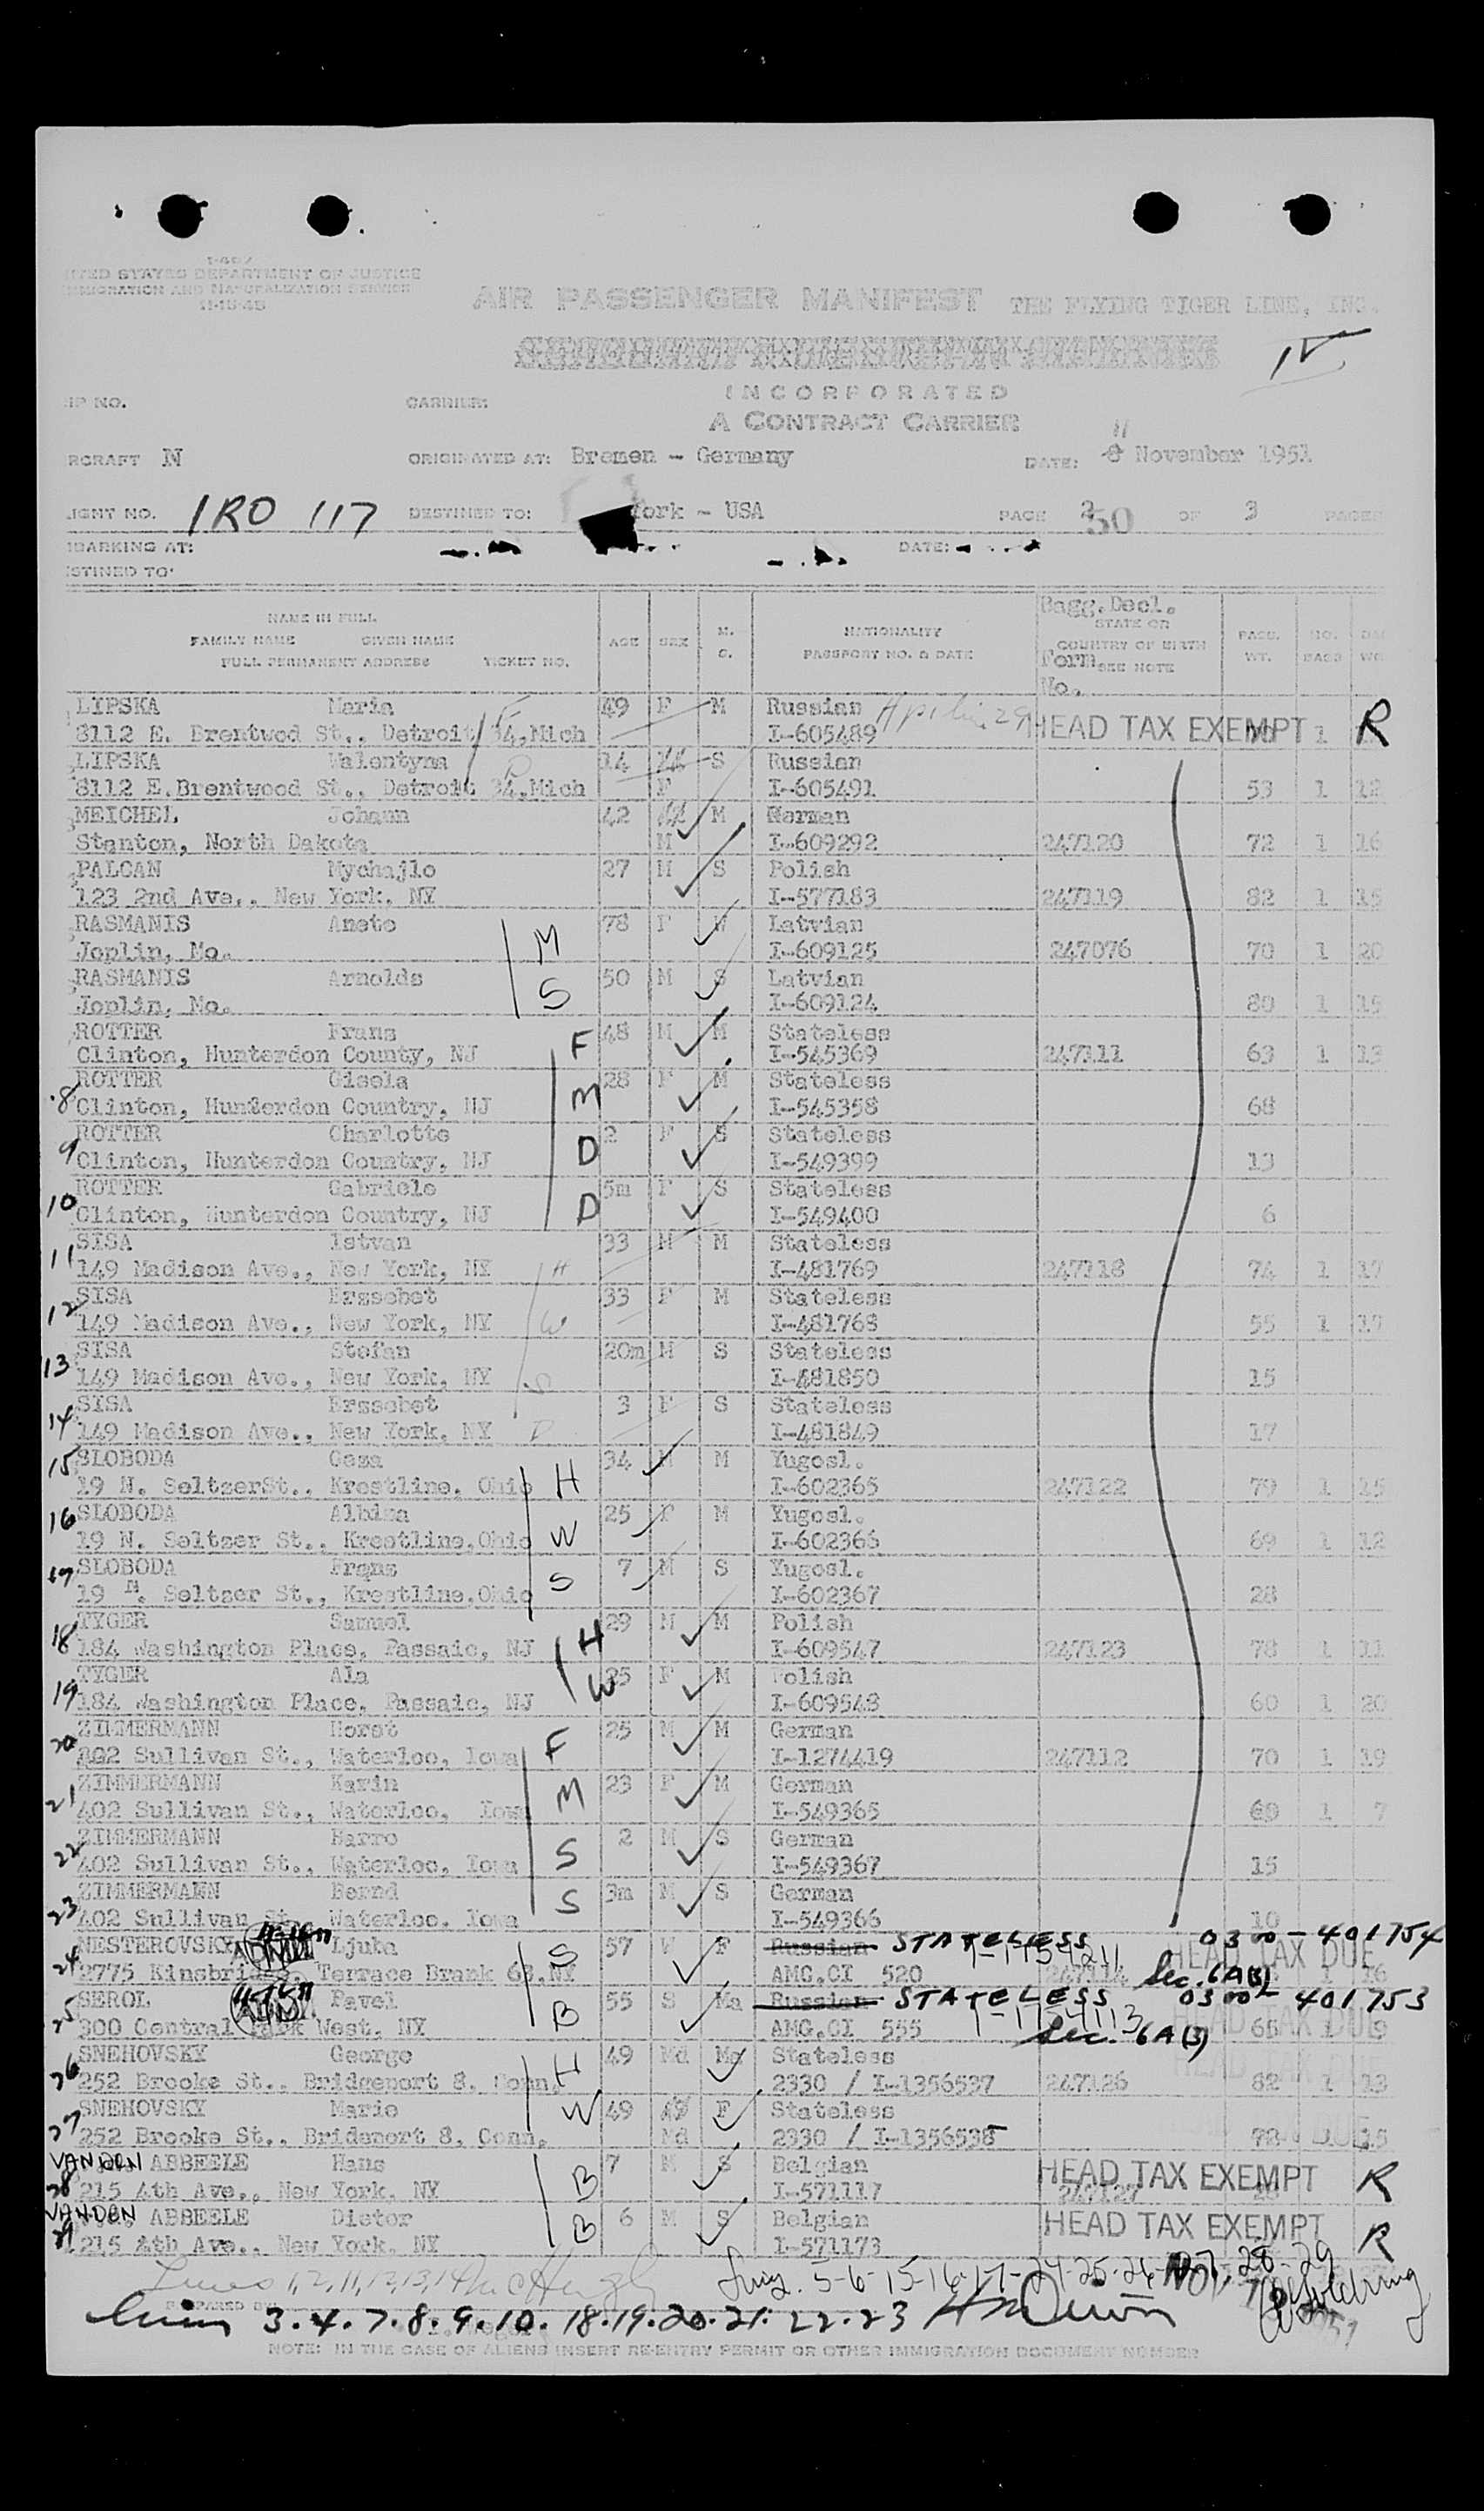 I-467
ITED STATES DEPARTMENT OF JUSTICE
IMMIGRATION AND NATURALIZATION SERVICE
11-15-48
AIR PASSENGER MANIFEST THE FLYING TIGER LINE, INC.
INCORPORATED
A CONTRACT CARRIER
IP NO. CARRIER:
11
RCRAFT N ORIGINATED AT: Bremen - Germany DATE: 8 November 1951
IGHT NO. IRO 117 DESTINED TO: York - USA PAGE 2 50 OF 3 PAGES
BARKING AT: DATE:
STINED TO
NAME IN FULL
FAMILY NAME GIVEN NAME
FULL PERMANENT ADDRESS TICKET NO.
AGE SEX M. S.
NATIONALITY
PASSPORT NO. & DATE
Bagg. Decl.
STATE OR
COUNTRY OF BIRTH
Form SEE NOTE
No.
PASS. WT. NO. BAGS
LIPSKA Maria 49 F M Russian
8112 E. Brentwod St., Detroit 34, Mich I-605489 HEAD TAX EXEMPT 1 R
LIPSKA Walentyna 14 S Russian
8112 E.Brentwood St., Detroit 34,Mich F I-605491 53 1 12
MEICHEL Johann 42 M German
Stanton, North Dakota M I-609292 247120 72 1 16
PALCAN Mychajlo 27 M S Polish
123 2nd Ave., New York, NY I-577183 247119 82 1 15
RASMANIS Anete 78 F W Latvian
Joplin, Mo. M I-609125 247076 70 1 20
RASMANIS Arnolds 50 M S Latvian
Joplin, Mo. S I-609124 80 1 15
ROTTER Franz F 48 M M Stateless
Clinton, Hunterdon County, NJ I-545369 247111 63 1 13
ROTTER Gisela 28 F M Stateless
8 Clinton, Hunterdon Country, NJ M I-545358 68
ROTTER Charlotte 2 F S Stateless
9 Clinton, Hunterdon Country, NJ D I-549399 13
ROTTER Gabriele 5m F S Stateless
10 Clinton, Hunterdon Country, NJ D I-549400 6
SISA Istvan 33 M M Stateless
11 149 Madison Ave., New York, NY H I-481769 247118 74 1 17
SISA Erzsebet 33 F M Stateless
12 149 Madison Ave., New York, NY W I-481768 55 1 17
SISA Stefan 20m M S Stateless
13 149 Madison Ave., New York, NY S I-481850 15
SISA Erzsebet 3 F S Stateless
14 149 Madison Ave., New York, NY D I-481849 17
15 SLOBODA Geza 34 M M Yugosl.
19 N. SeltzerSt., Krestline, Ohio H I-602365 247122 79 1 15
16 SLOBODA Albina 25 F M Yugosl.
19 N. Seltzer St., Krestline,Ohio W I-602366 69 1 12
17 SLOBODA Franz 7 M S Yugosl.
19 N. Seltzer St., Krestline,Ohio S I-602367 28
TYGER Samuel 29 M M Polish
18 184 Washington Place, Passaic, NJ H I-609547 247123 78 1 11
TYGER Ala 25 F M Polish
19 184 Washington Place, Passaic, NJ W I-609548 60 1 20
ZIMMERMANN Horst 25 M M German
20 402 Sullivan St., Waterloo, Iowa F I-1274419 247112 70 1 19
ZIMMERMANN Karin 23 F M German
21 402 Sullivan St., Waterloo, Iowa M I-549365 60 1 7
ZIMMERMANN Harro 2 M S German
22 402 Sullivan St., Waterloo, Iowa S I-549367 15
ZIMMERMANN Bernd 3m M S German
23 402 Sullivan St., Waterloo, Iowa S I-549366 10
NESTEROVSKY Ljuba S 57 W F Russian STATELESS 0300-401754
24 2775 Kinsbridge, Terrace Brank 63,NY AMG.CI 520 247114 Sec. 6A(3) HEAD TAX DUE 1 16
25 SEROL Pavel 55 S Ma Russian STATELESS 0300-401753
300 Central Park West, NY B AMG.CI 555 Sec. 6A(3) HEAD TAX DUE 65 1 9
SNEHOVSKY George 49 Md Ma Stateless
26 252 Brooke St., Bridgeport 8, Conn. H 2330 / I-1356537 247126 82 1 13
SNEHOVSKY Marie W 49 F Stateless
27 252 Brooke St., Bridgeport 8, Conn. Md 2330 / I-1356538 72 15
VAN DEN ABBEELE Hans 7 M S Belgian
28 215 4th Ave., New York, NY B I-571117 247127 HEAD TAX EXEMPT R
VAN DEN ABBEELE Dieter 6 M S Belgian
29 215 4th Ave., New York, NY B I-571173 HEAD TAX EXEMPT R
Lines 1, 2, 11, 12, 13, 14 McHugh
5-6-15-16-17-24-25-26-27-28-29
PREPARED BY
Lines 3.4.7.8.9.10.18.19.20.21.22.23
NOTE: IN THE CASE OF ALIENS INSERT RE-ENTRY PERMIT OR OTHER IMMIGRATION DOCUMENT NUMBER